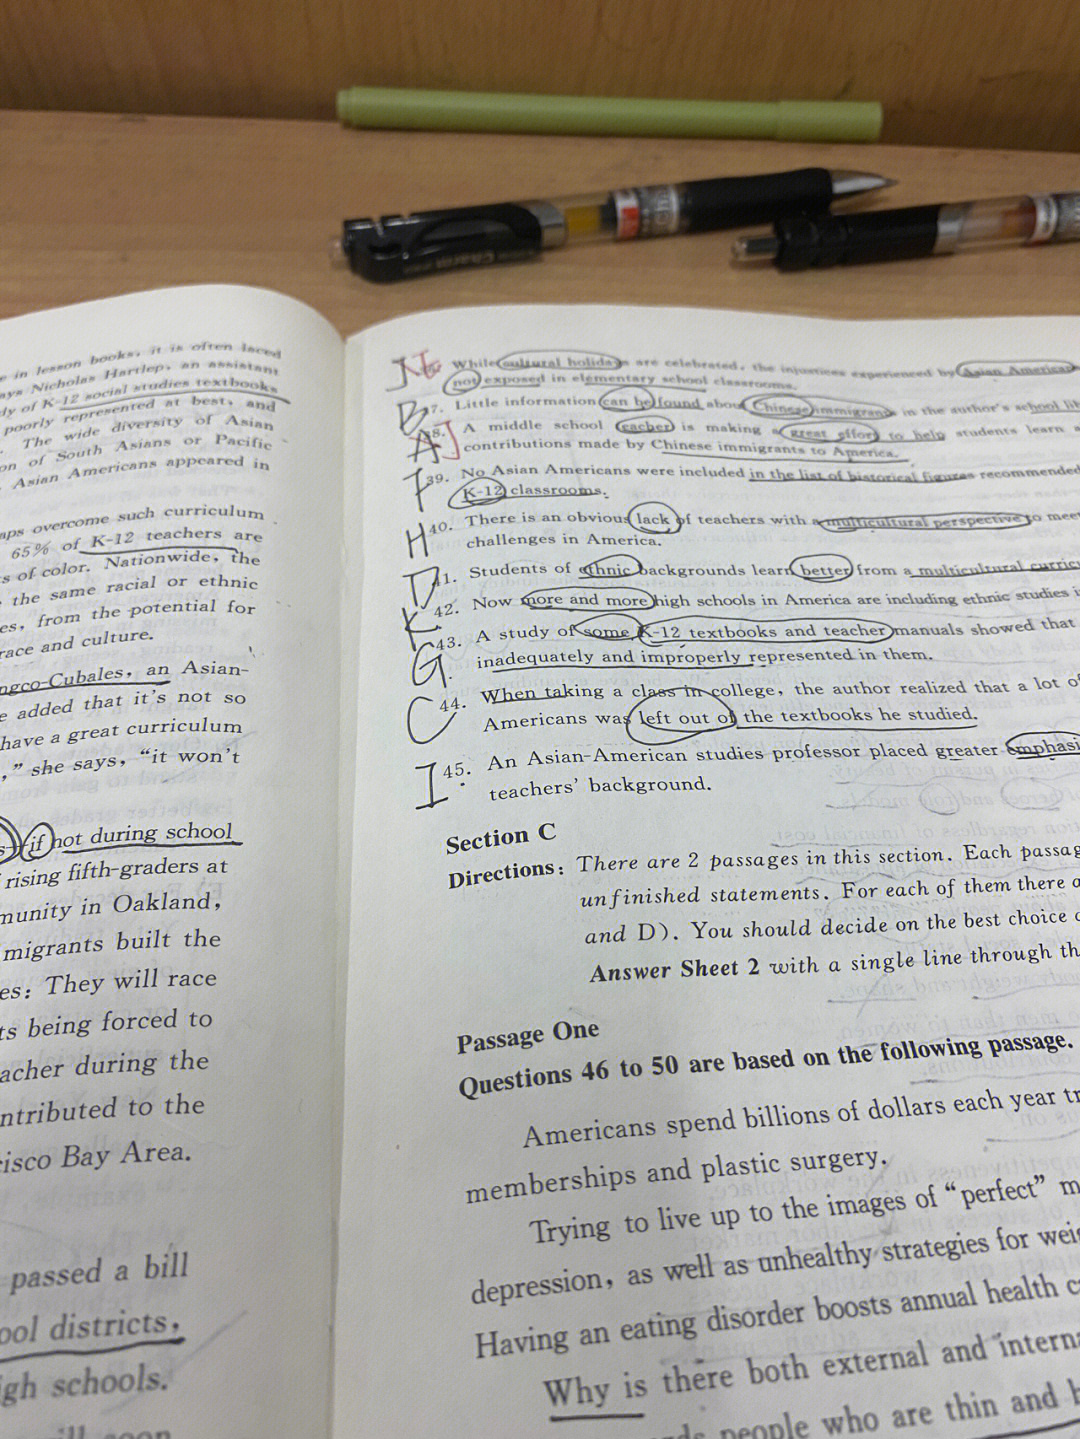 in lesson books, it is often laced
says Nicholas Hartlep, an assistant
dy of K-12 social studies textbooks
poorly represented at best, and
The wide diversity of Asian
on of South Asians or Pacific
Asian Americans appeared in
aps overcome such curriculum
65% of K-12 teachers are
s of color. Nationwide, the
the same racial or ethnic
es, from the potential for
race and culture.
ngco-Cubales, an Asian-
e added that it's not so
have a great curriculum
," she says, "it won't
s—if not during school
rising fifth-graders at
munity in Oakland,
migrants built the
es: They will race
ts being forced to
acher during the
ntributed to the
cisco Bay Area.
passed a bill
ool districts,
igh schools.
While cultural holidays are celebrated, the injustices experienced by Asian Americans
not exposed in elementary school classrooms.
B 7. Little information can be found about Chinese immigrants in the author's school
A J 8. A middle school eacher is making a great effort to help students learn
contributions made by Chinese immigrants to America.
39. No Asian Americans were included in the list of historical figures recommended
K-12 classrooms.
H 40. There is an obvious lack of teachers with a multicultural perspective to mee
challenges in America.
D 41. Students of ethnic backgrounds learn better from a multicultural curric
K 42. Now more and more high schools in America are including ethnic studies i
G 43. A study of some K-12 textbooks and teacher manuals showed that
inadequately and improperly represented in them.
C 44. When taking a class in college, the author realized that a lot of
Americans was left out of the textbooks he studied.
I 45. An Asian-American studies professor placed greater emphasi
teachers' background.
Section C
Directions: There are 2 passages in this section. Each passag
unfinished statements. For each of them there a
and D). You should decide on the best choice
Answer Sheet 2 with a single line through th
Passage One
Questions 46 to 50 are based on the following passage.
Americans spend billions of dollars each year tr
memberships and plastic surgery.
Trying to live up to the images of "perfect" m
depression, as well as unhealthy strategies for wei
Having an eating disorder boosts annual health c
Why is there both external and interna
people who are thin and